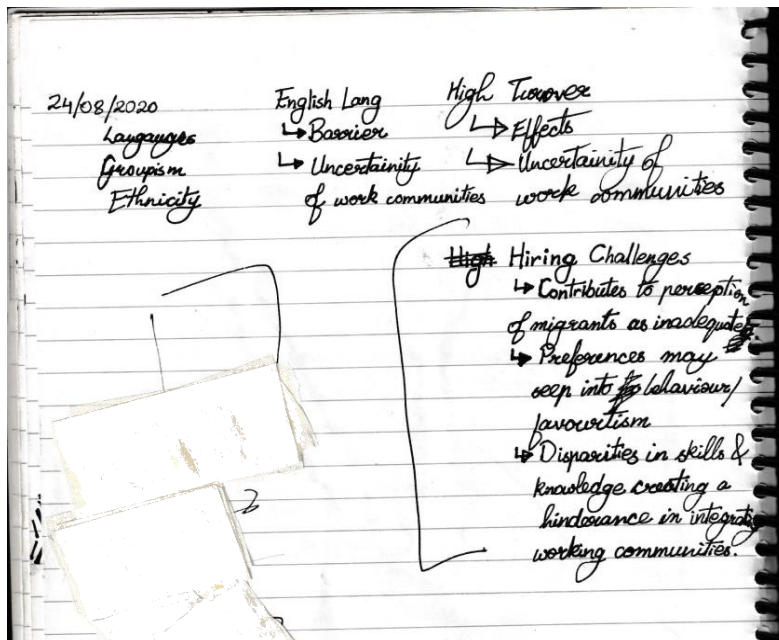 24/08/2020
Langauges
Groupism
Ethnicity
English Lang
↳ Barrier
↳ Uncertainity
of work communities
High Turover
↳ Effects
↳ Uncertainity of
work communities
Hiring Challenges
↳ Contributes to perception
of migrants as inadequate
↳ Preferences may
seep into behaviour/
favourtism
↳ Disparities in skills &
knowledge creating a
hinderance in integrating
working communities.